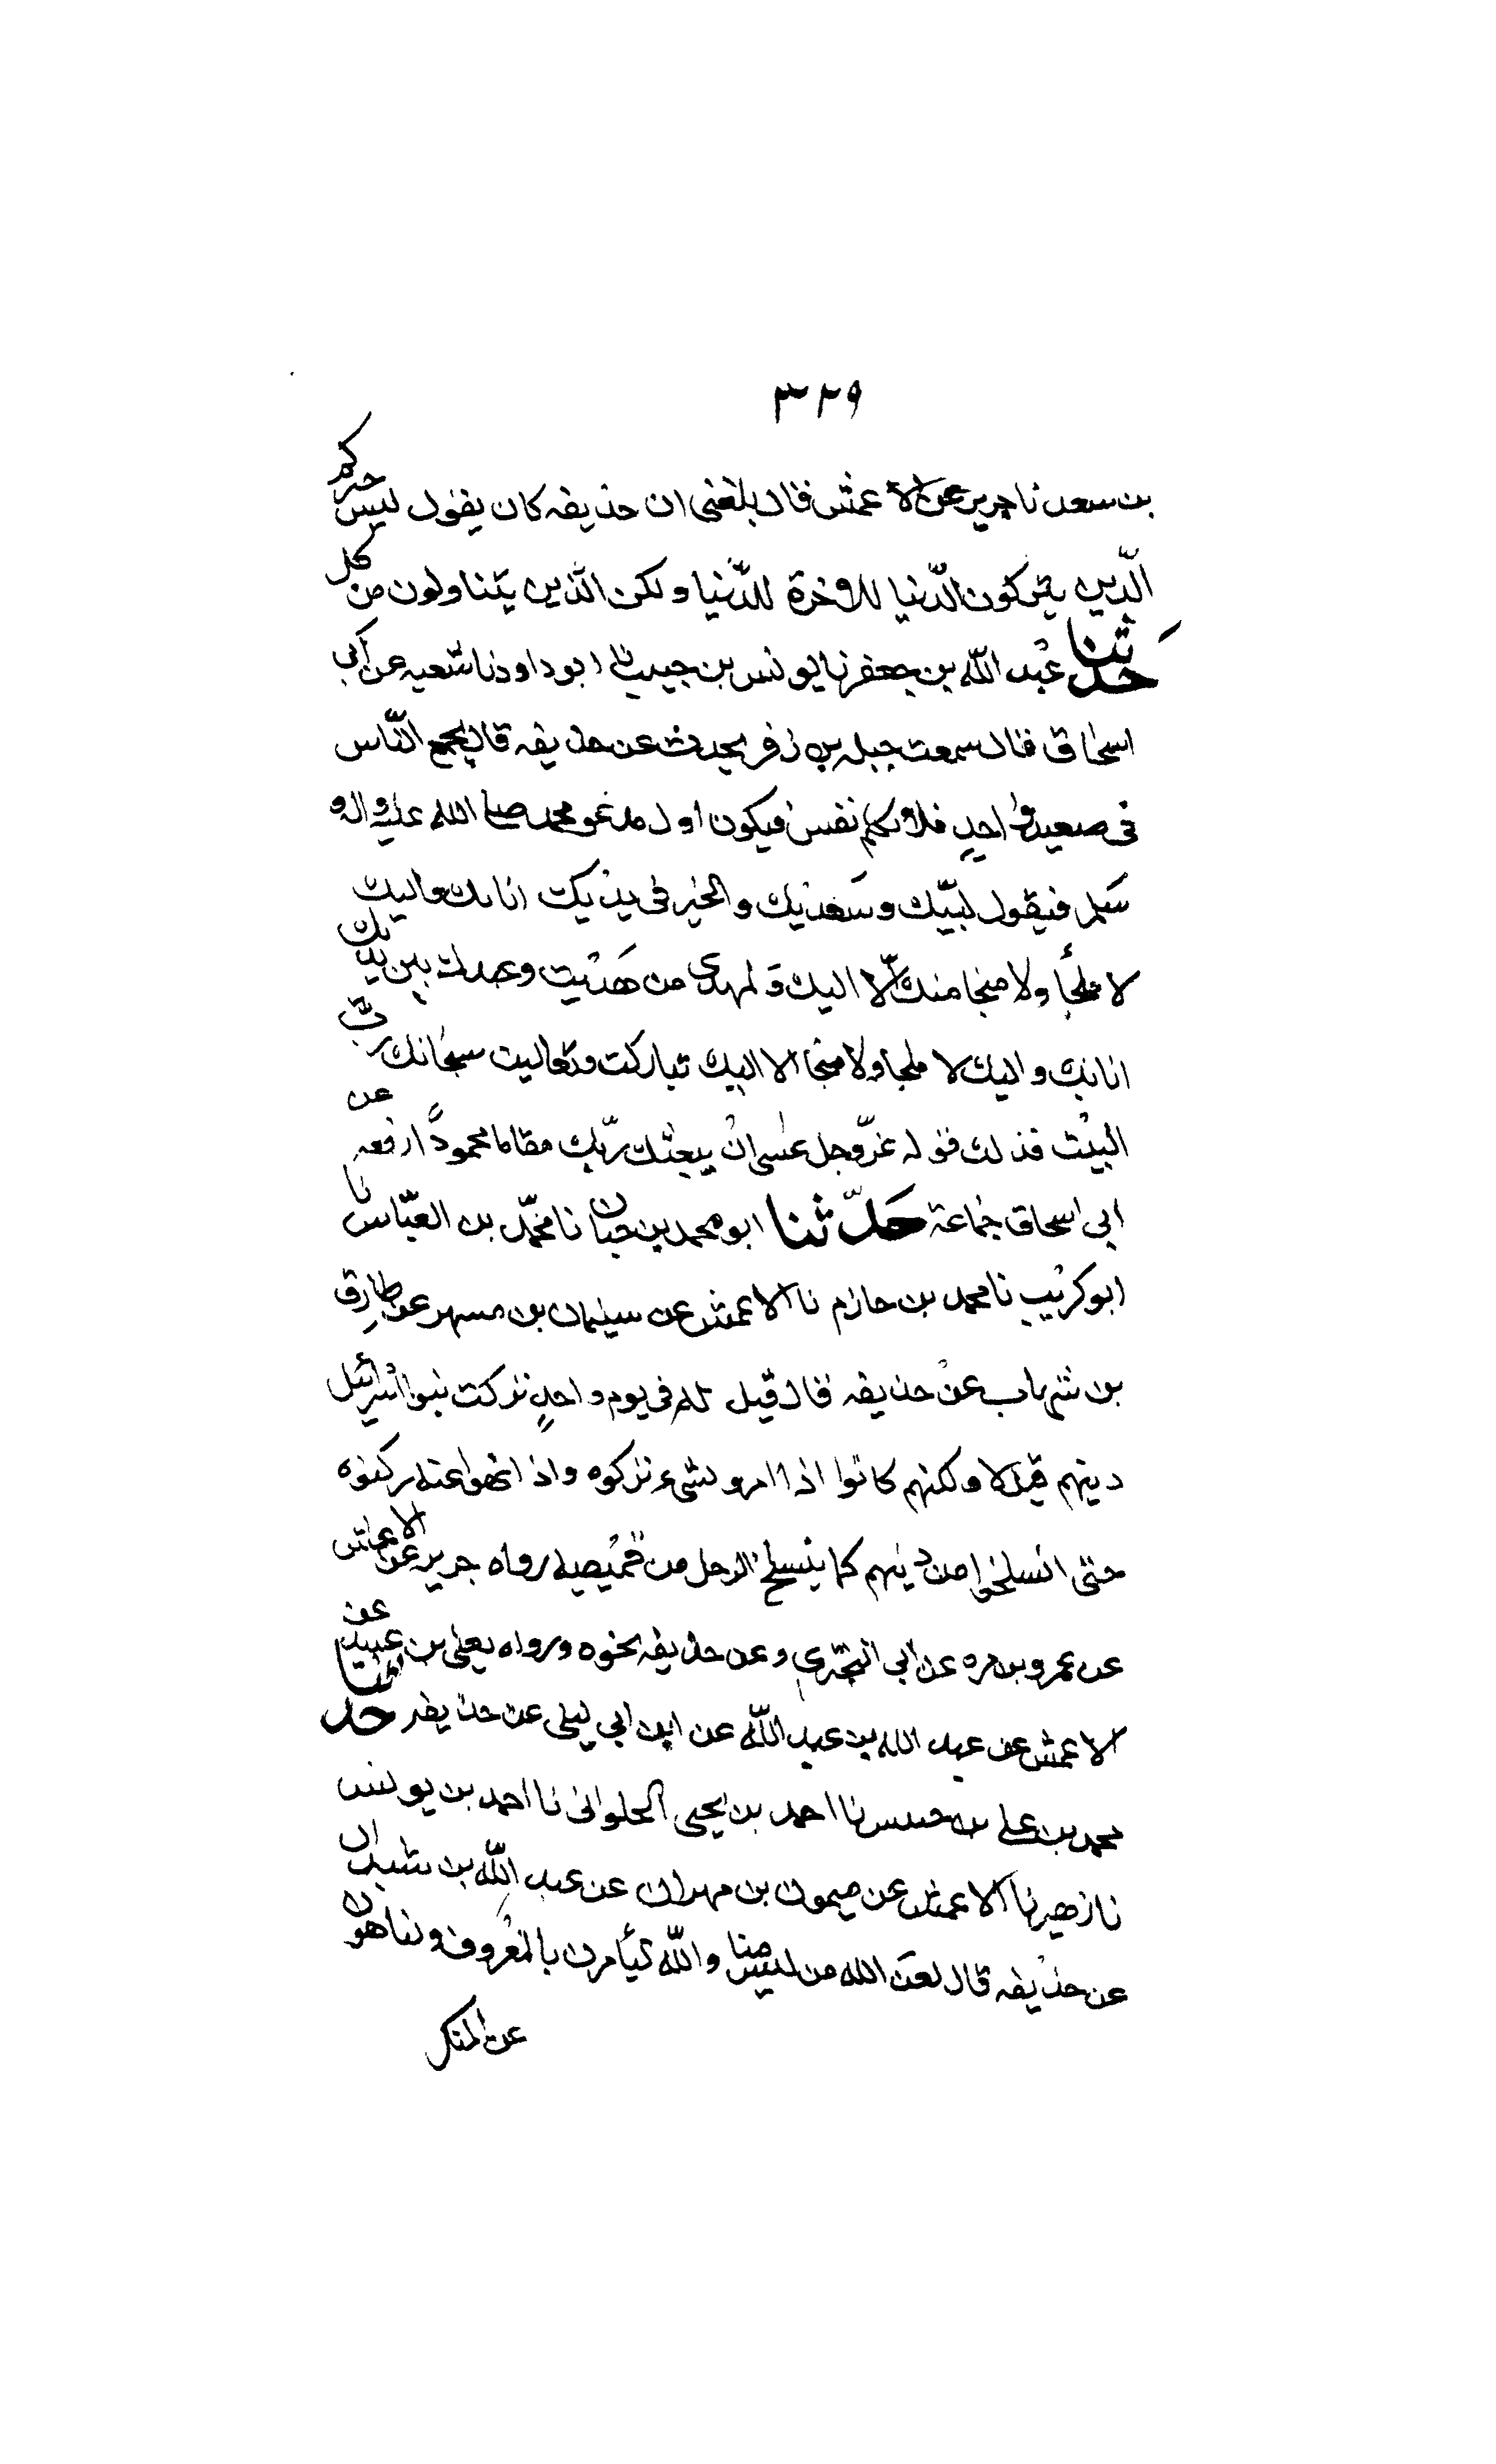 ٣٢٩
بن سعد نا جرير عن الاعمش قال بلغنى ان حذيفه كان يقول ليس خيركم
الّذين يتركون الدّنيا للاخرة للدّنيا ولكن الذين يتناولون من كل
حدثنا عبد اللّه بن جعفر نا يونس بن حبيب نا ابو داود نا شعبه عن ابى
اسحاق قال سمعت جبله بن زفر يحدث عن حذيفه قال يجمع النّاس
فى صعيد واحدٍ فلا تكلم نفس فيكون اول مدعو محمد صلى الله عليه واله و
سَلم فيقول لبّيك وسَعديك والخير فى يديك انا بك واليك
لا ملجأ ولا منجا منك الّا اليك وَالمهدى من هَديت وعبدك بين يديك
انا بك واليك لا ملجا ولا منجا الا اليك تباركت وتعاليت سبحانك ربّ
البيت فذلك قوله عزّوجل عسى ان يبعثك ربّك مقاما محموداً رفعه عن
ابى اسحاق جماعة حَدّثنا ابو محمد بن حبان نا محمّد بن العبّاس نا
ابو كريب نا محمد بن حازم نا الاعمش عن سليمان بن مسهر عن طارِق
بن شهاب عن حذيفه قال قيل له فى يوم واحدٍ تركت بنوا اسرائيل
دينهم قال لا ولكنهم كانوا اذا امرو بشىء تركوه واذا انهوا عنه ركبوه
حتى انسلخوا من دينهم كما ينسلخ الرجل من قميصه رواه جرير عن الاعمش
عن عمرو بن مره عن ابى البخترى وعن حذيفه نحوه ورواه يعلى بن عبيد عن
الاعمش عن عبد الله بن عبد اللّه عن ابن ابى ليلى عن حذيفه حدثنا
محمد بن على بن حبيس نا احمد بن يحيى الحلوانى نا احمد بن يونس
نا زهير نا الاعمش عن ميمون بن مهران عن عبد اللّه بن سيدان
عن حذيفه قال لعَن الله من ليس منا واللّه لتأمرن بالمعروف ولتناهون
عن المنكر